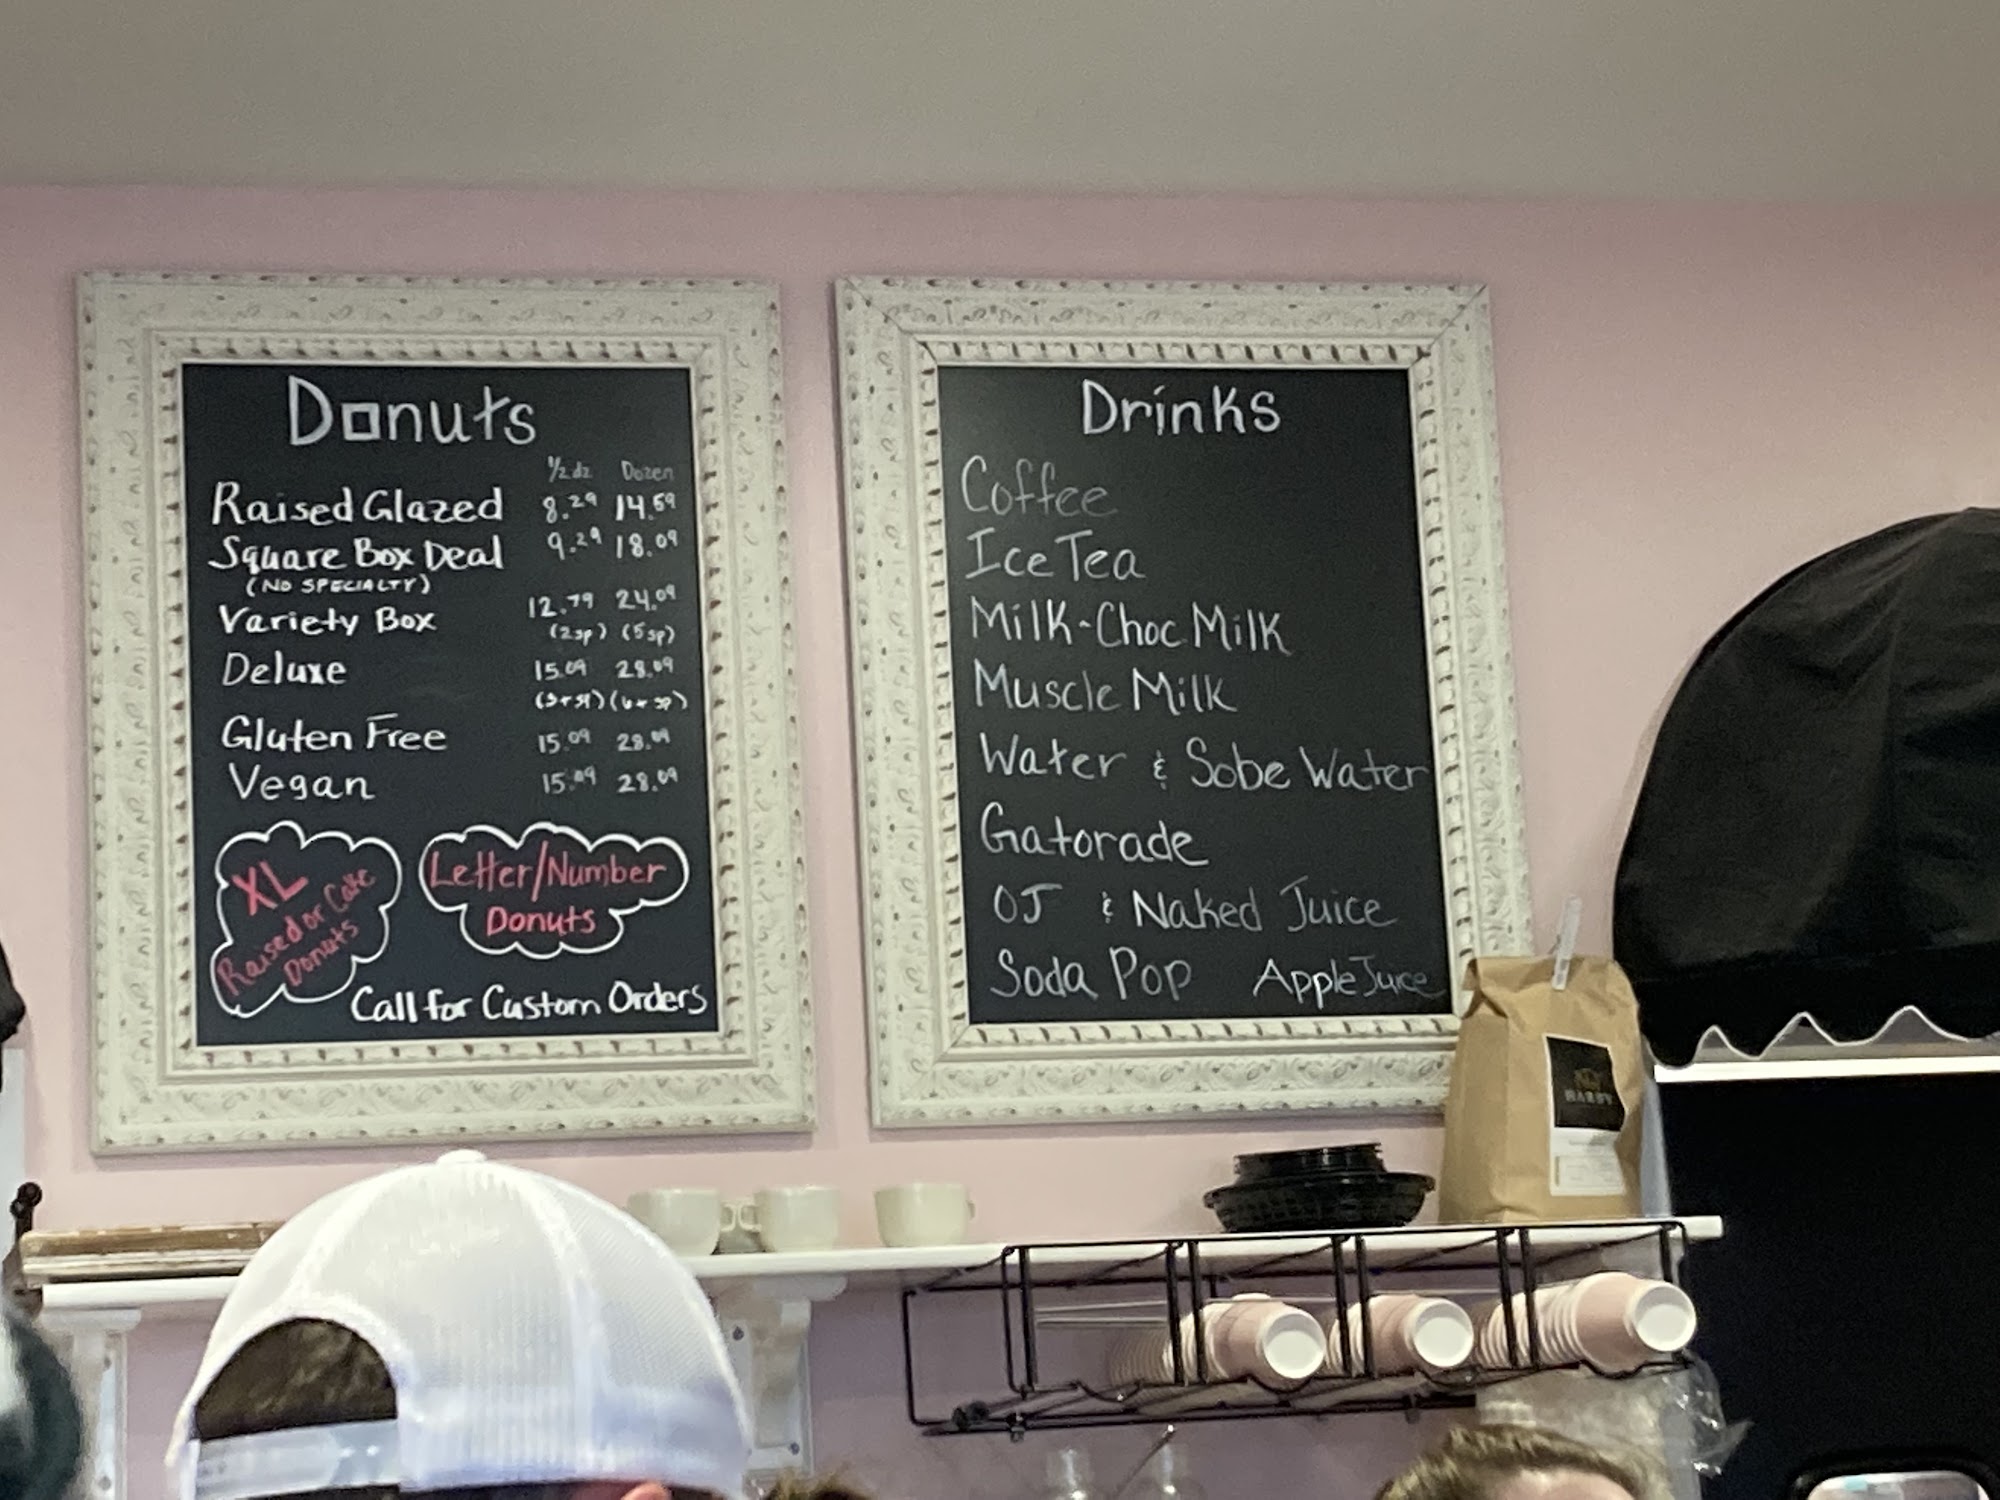 Donuts
1/2 dz Dozen
Raised Glazed 8.29 14.59
Square Box Deal 9.29 18.09
(NO SPECIALTY)
Variety Box 12.79 24.09
(2sp) (5sp)
Deluxe 15.09 28.09
Gluten Free 15.09 28.09
Vegan 15.09 28.09
XL
Raised or Cake
Donuts
Letter/Number
Donuts
Call for Custom Orders
Drinks
Coffee
Ice Tea
Milk-Choc Milk
Muscle Milk
Water & Sobe Water
Gatorade
OJ & Naked Juice
Soda Pop Apple Juice